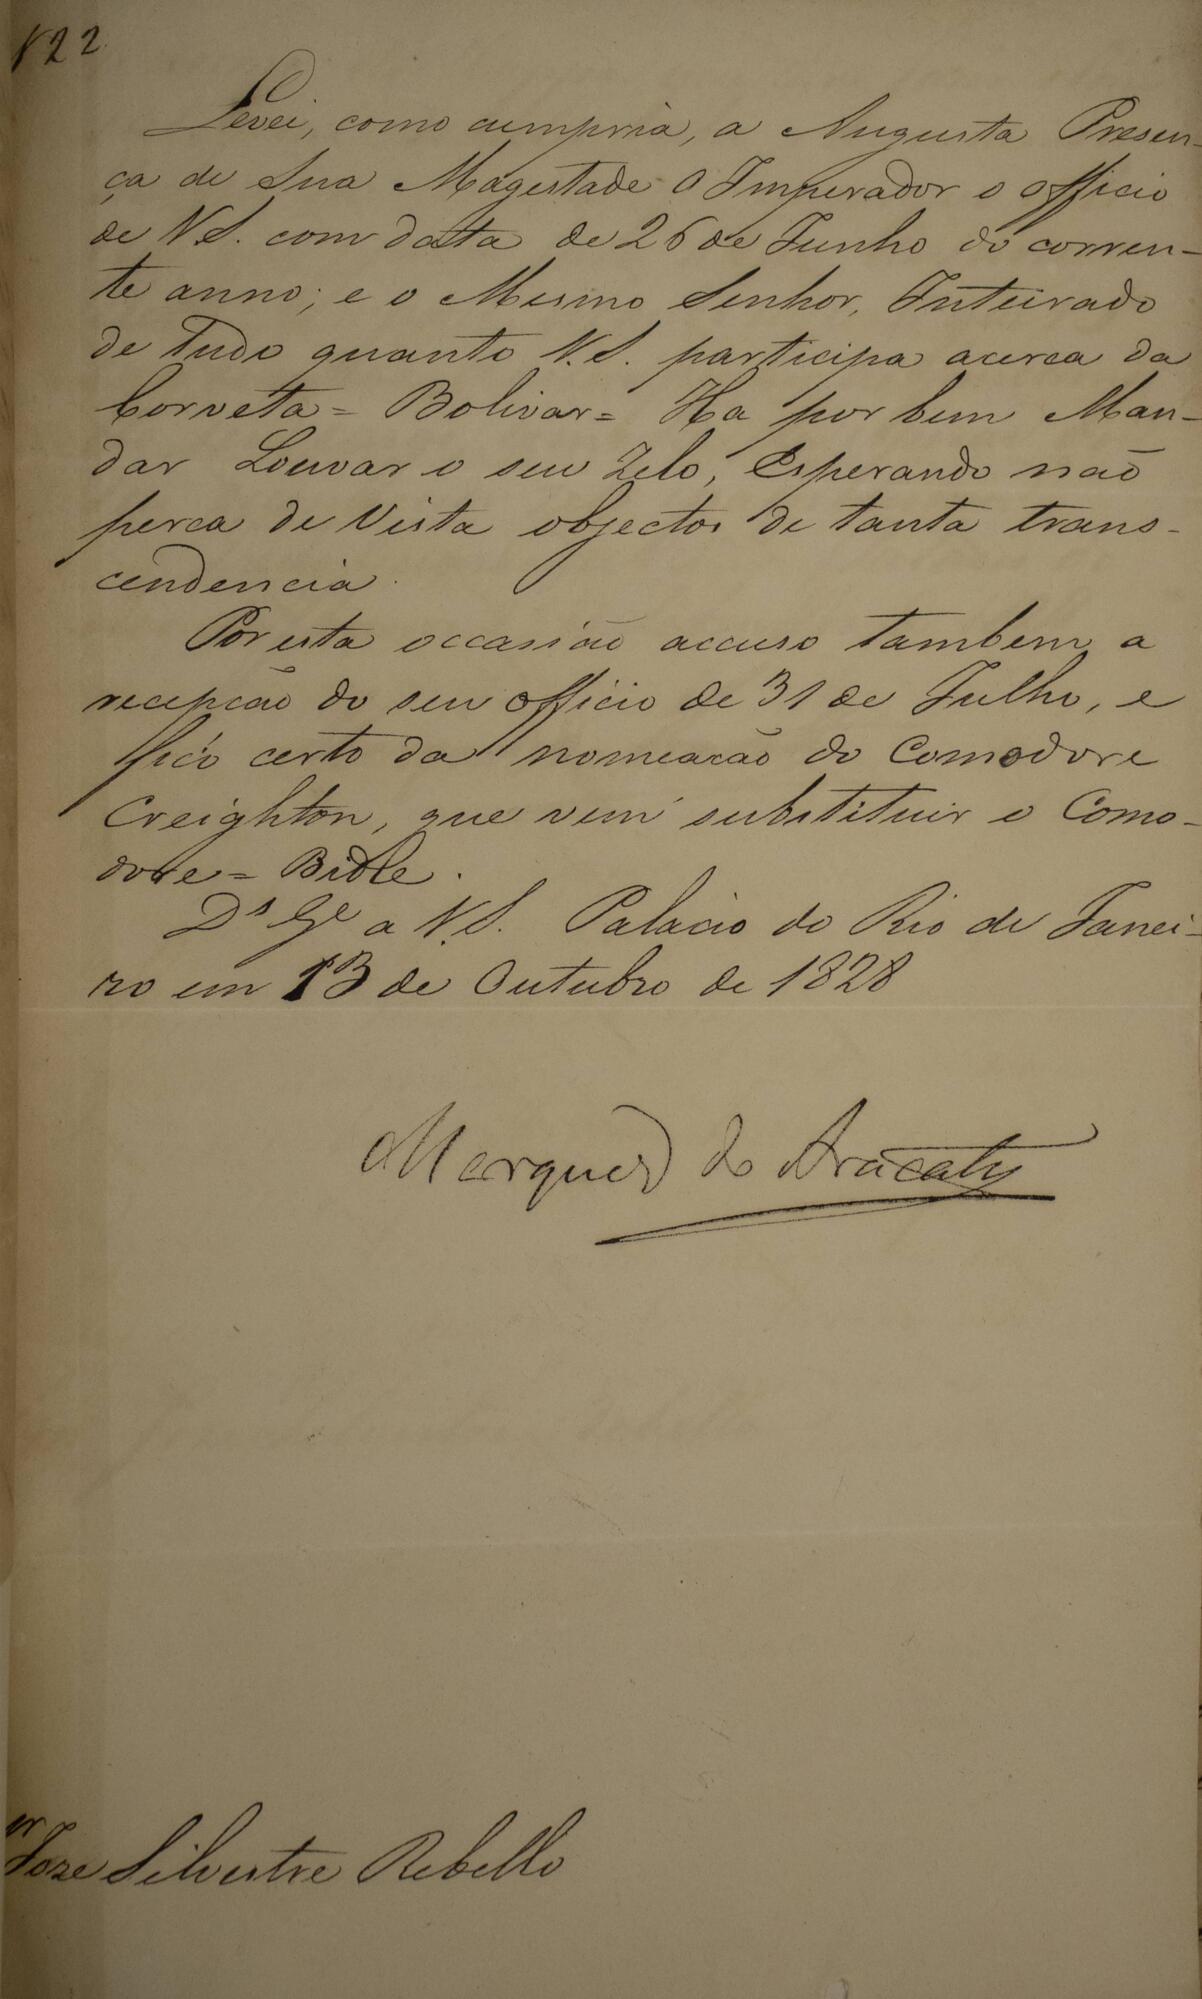 122
Levei, como cumpria, a Augusta Presen-
ça de Sua Magestade O Imperador o officio
de V.S. com data de 26 de Junho do corren-
te anno; e o Mesmo Senhor, Inteirado
de tudo quanto V.S. participa acerca da
Corveta = Bolivar = Ha por bem Man-
dar Louvar o seu zelo, Esperando não
perca de vista objectos de tanta trans-
cendencia.
Por esta occasião accuso tambem a
recepção do seu officio de 31 de Julho, e
ficó certo da nomeacão do Comodore
Creighton, que vem substituir o Como-
dore = Bidle.
Ds Ge a V.S. Palacio do Rio de Janei-
ro em 13 de Outubro de 1828
Marquez do Aracaty
er
Joze Silvestre Rebello